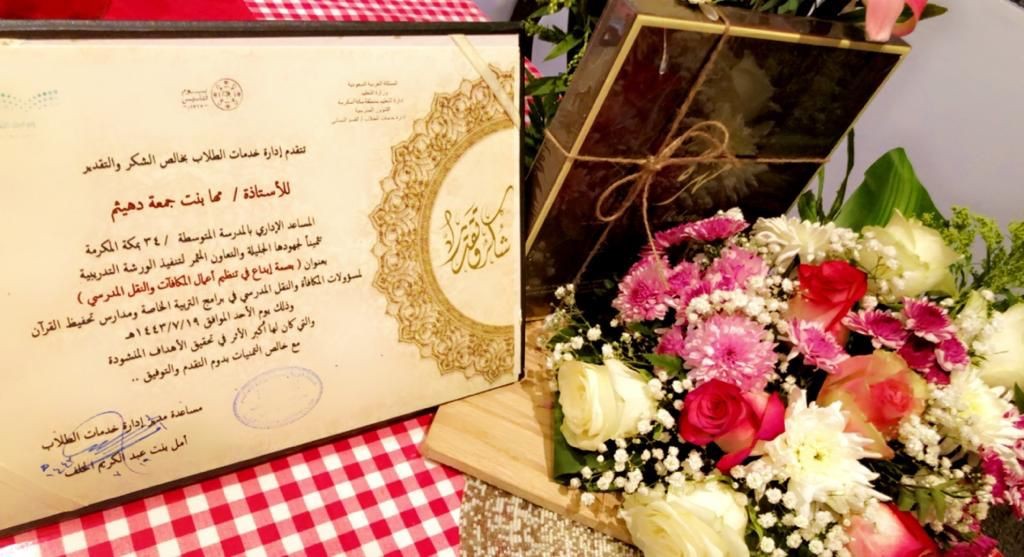 المملكة العربية السعودية
وزارة التعليم
إدارة التعليم بمنطقة مكة المكرمة
الشؤون المدرسية
يوم التأسيس
تتقدم إدارة خدمات الطلاب بخالص الشكر والتقدير
للأستاذة / مها بنت جمعة دهيثم
المساعد الإداري بالمدرسة المتوسطة / ٣٤ بمكة المكرمة
تثميناً لجهودها الجليلة والتعاون المثمر لتنفيذ الورشة التدريبية
بعنوان ( بصمة إبداع في تنظيم أعمال المكافآت والنقل المدرسي )
لمسؤولات المكافأة والنقل المدرسي في برامج التربية الخاصة ومدارس تحفيظ القرآن
وذلك يوم الأحد الموافق ١٤٤٣/٧/١٩هـ
والتي كان لها أكبر الأثر في تحقيق الأهداف المنشودة
مع خالص التمنيات بدوم التقدم والتوفيق ..
شكر وتقدير
مساعدة مدير إدارة خدمات الطلاب
أمل بنت عبد الكريم